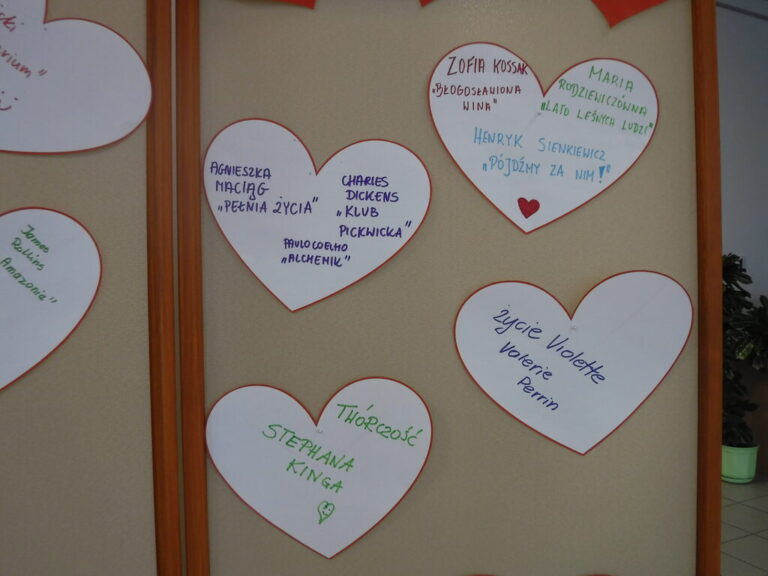 arium"
James
Rollins
Amazonia"
AGNIESZKA
MACIĄG
„PEŁNIA ŻYCIA"
CHARLES
DICKENS
„KLUB
PICKWICKA"
PAULO COELHO
„ALCHEMIK"
ZOFIA KOSSAK
"BŁOGOSŁAWIONA
WINA"
MARIA
RODZIEWICZÓWNA
„LATO LEŚNYCH LUDZI"
HENRYK SIENKIEWICZ
„PÓJDŹMY ZA NIM!"
Życie Violette
Valerie
Perrin
TWÓRCZOŚĆ
STEPHANA
KINGA